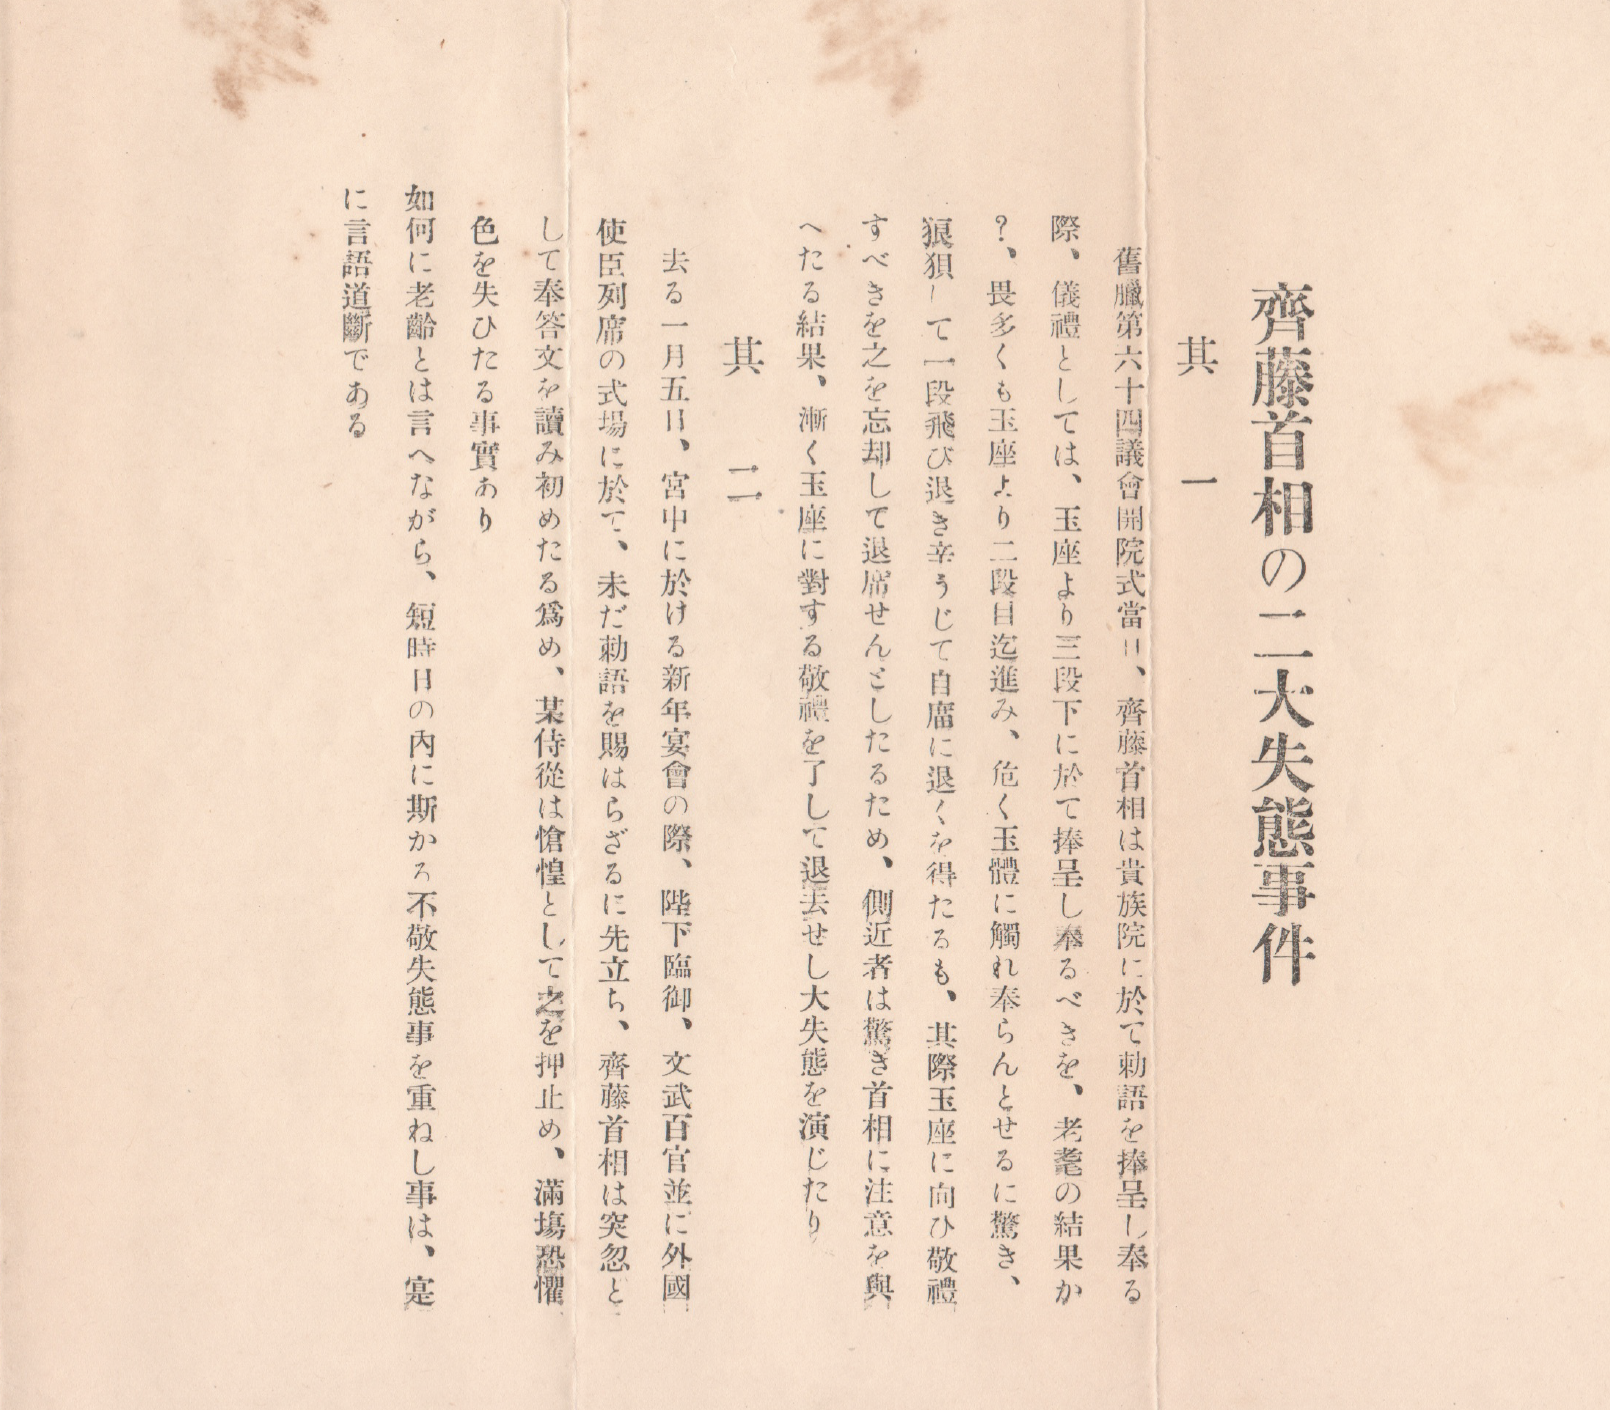 齊藤首相の二大失態事件
其一
舊臘第六十四議會開院式當日、齊藤首相は貴族院に於て勅語を捧呈し奉る
際、儀禮としては、玉座より三段下に於て捧呈し奉るべきを、老耄の結果か
？、畏多くも玉座より二段目迄進み、危く玉體に觸れ奉らんとせるに驚き、
狼狽して一段飛び退き辛うじて自席に退くを得たるも、其際玉座に向ひ敬禮
すべきを之を忘却して退席せんとしたるため、側近者は驚き首相に注意を與
へたる結果、漸く玉座に對する敬禮を了して退去せし大失態を演じたり
其二
去る一月五日、宮中に於ける新年宴會の際、陛下臨御、文武百官並に外國
使臣列席の式場に於て、未だ勅語を賜はらざるに先立ち、齊藤首相は突忽と
して奉答文を讀み初めたる爲め、某侍從は愴惶として之を押止め、滿塲恐懼
色を失ひたる事實あり
如何に老齡とは言へながら、短時日の內に斯かる不敬失態事を重ねし事は、寔
に言語道斷である